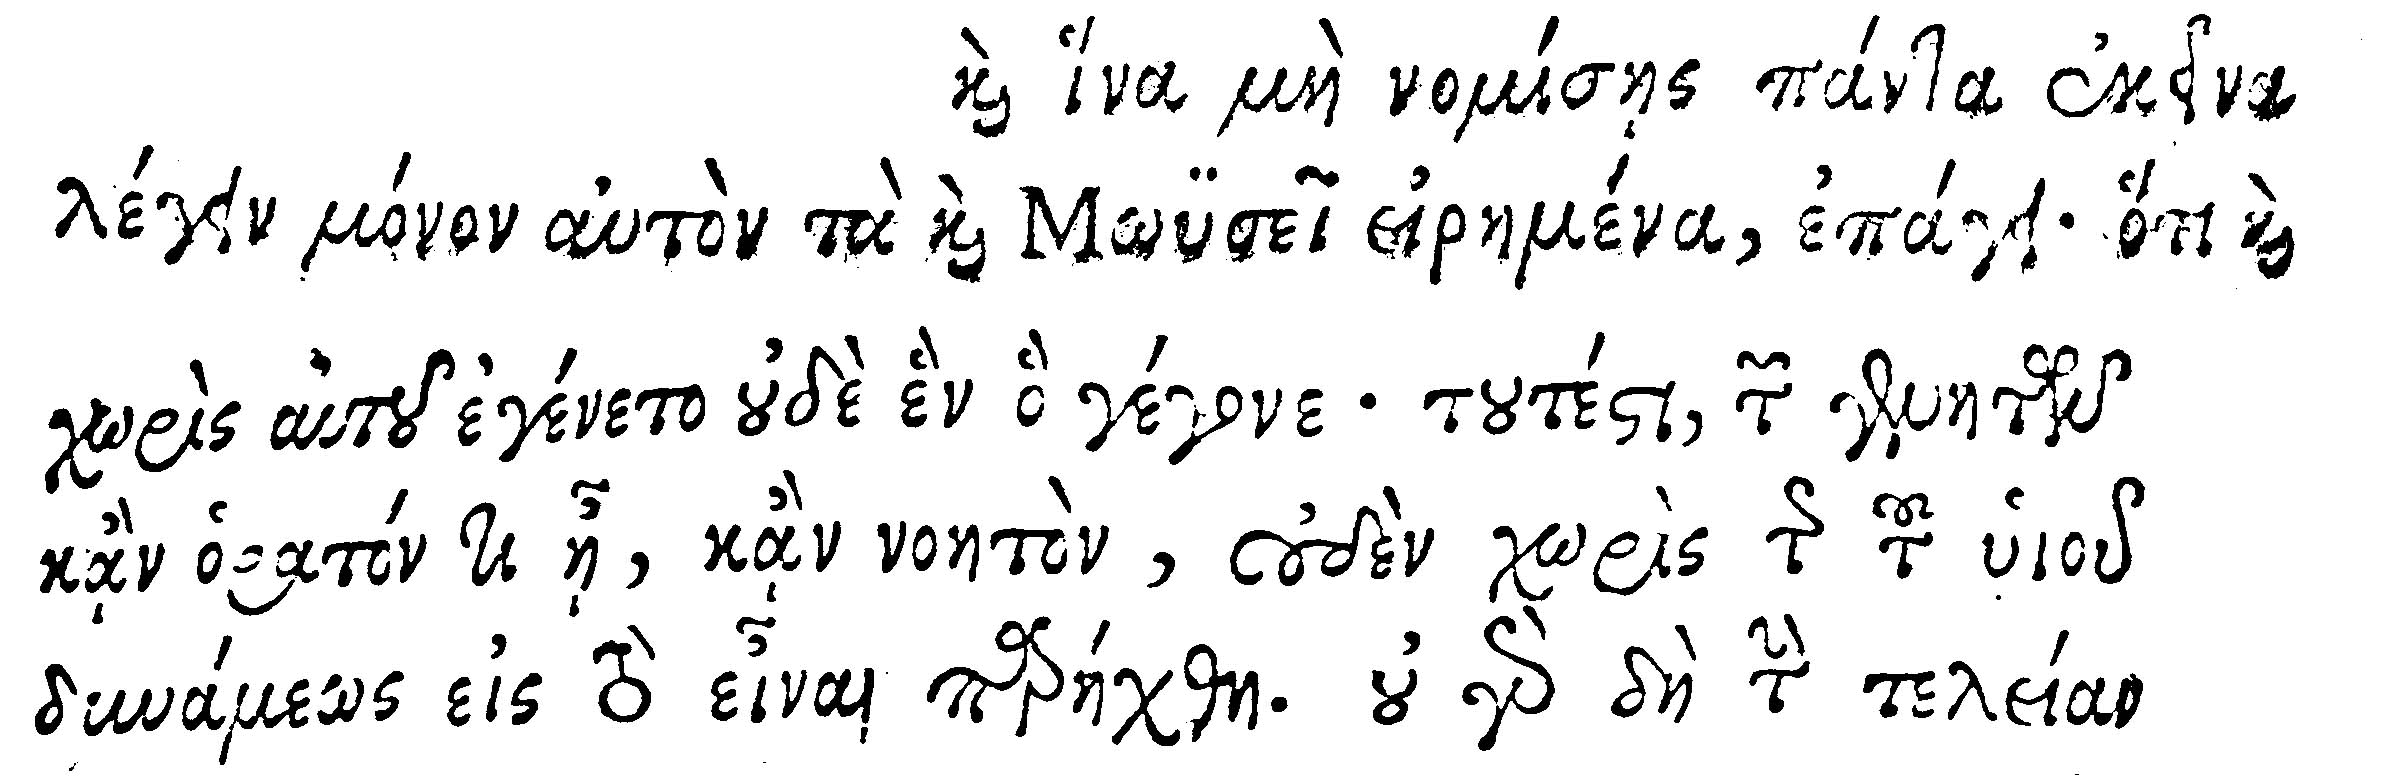 καὶ ἵνα μὴ νομίσης πάντα ἐκεῖνα
λέγειν μόνον αὐτὸν τὰ καὶ Μωϋσεῖ εἰρημένα, ἐπάγει· ὅτι καὶ
χωρὶς αὐτοῦ ἐγένετο οὐδὲ ἓν ὃ γέγονε· τουτέστι, τῶν
κᾂν ὁρατόν τι ᾖ, κᾂν νοητὸν, οὐδὲν χωρὶς τῆς τοῦ υἱοῦ
δυνάμεως εἰς τὸ εἶναι παρήχθη. οὐ γὰρ δὴ τὴν τελείαν